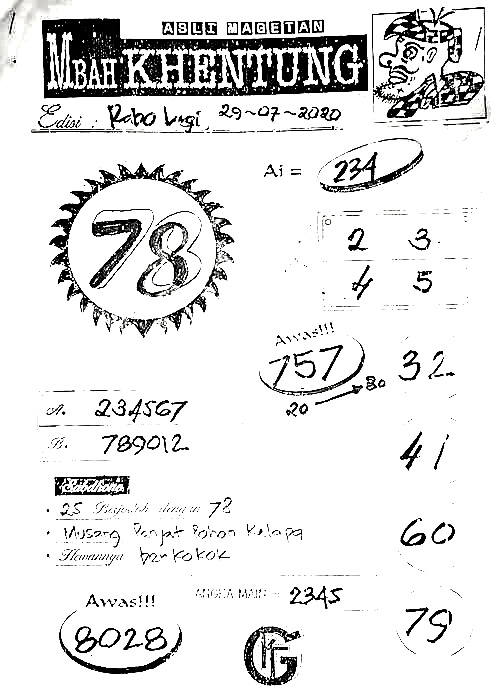 ASLI MAGETAN
MBAH KHENTUNG
Edisi : Rabo Legi, 29-07-2020
Ai = 234
78
2 3
4 5
Awas!!!
757
20 → 80
32
A. 234567
B. 789012
41
• 25 Berjodoh dengan 78
• Musang Panjat Pohon Kelapa
• Hewannya berkokok
60
ANGKA MAIN = 2345
Awas!!!
8028
79